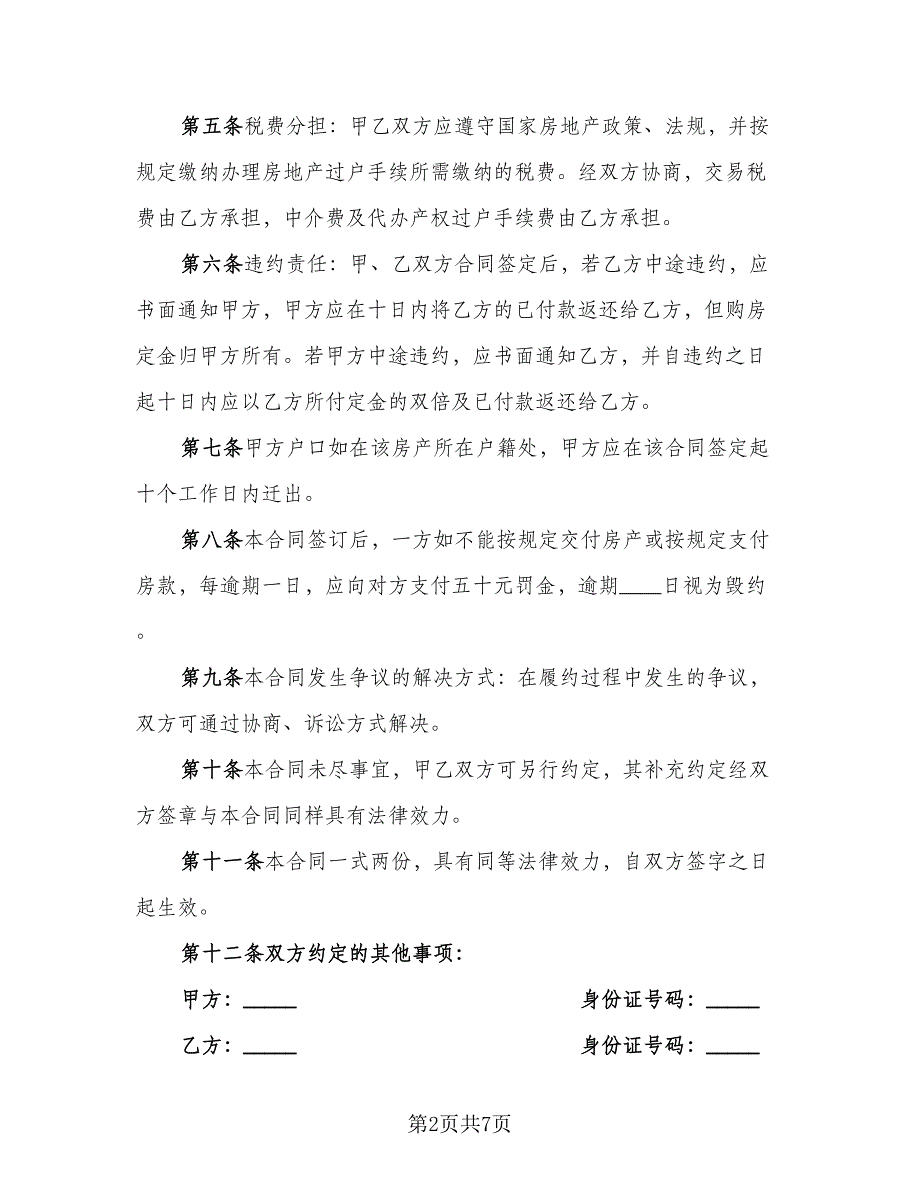 第五条税费分担：甲乙双方应遵守国家房地产政策、法规，并按
规定缴纳办理房地产过户手续所需缴纳的税费。经双方协商，交易税
费由乙方承担，中介费及代办产权过户手续费由乙方承担。
第六条违约责任：甲、乙双方合同签定后，若乙方中途违约，应
书面通知甲方，甲方应在十日内将乙方的已付款返还给乙方，但购房
定金归甲方所有。若甲方中途违约，应书面通知乙方，并自违约之日
起十日内应以乙方所付定金的双倍及已付款返还给乙方。
第七条甲方户口如在该房产所在户籍处，甲方应在该合同签定起
十个工作日内迁出。
第八条本合同签订后，一方如不能按规定交付房产或按规定支付
房款，每逾期一日，应向对方支付五十元罚金，逾期____日视为毁约
。
第九条本合同发生争议的解决方式：在履约过程中发生的争议，
双方可通过协商、诉讼方式解决。
第十条本合同未尽事宜，甲乙双方可另行约定，其补充约定经双
方签章与本合同同样具有法律效力。
第十一条本合同一式两份，具有同等法律效力，自双方签字之日
起生效。
第十二条双方约定的其他事项：
甲方：_____ 身份证号码：_____
乙方：_____ 身份证号码：_____
第2页共7页